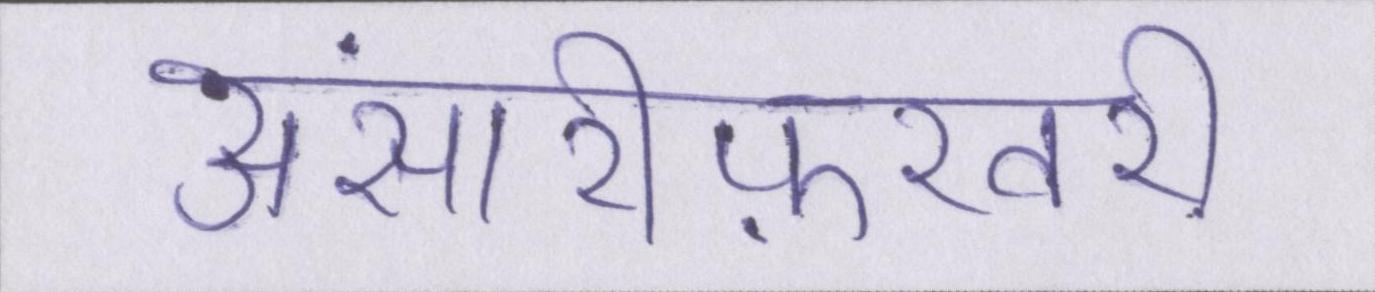 अंसारीफ़रवरी